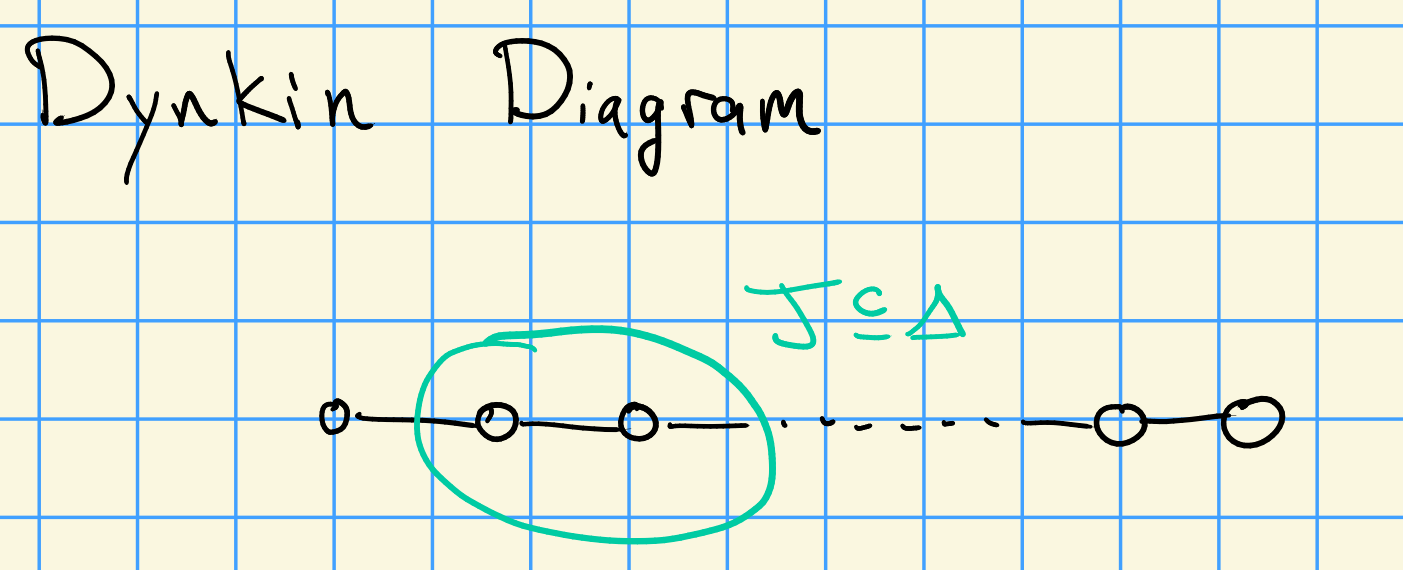 Dynkin Diagram
J ⊆ Δ